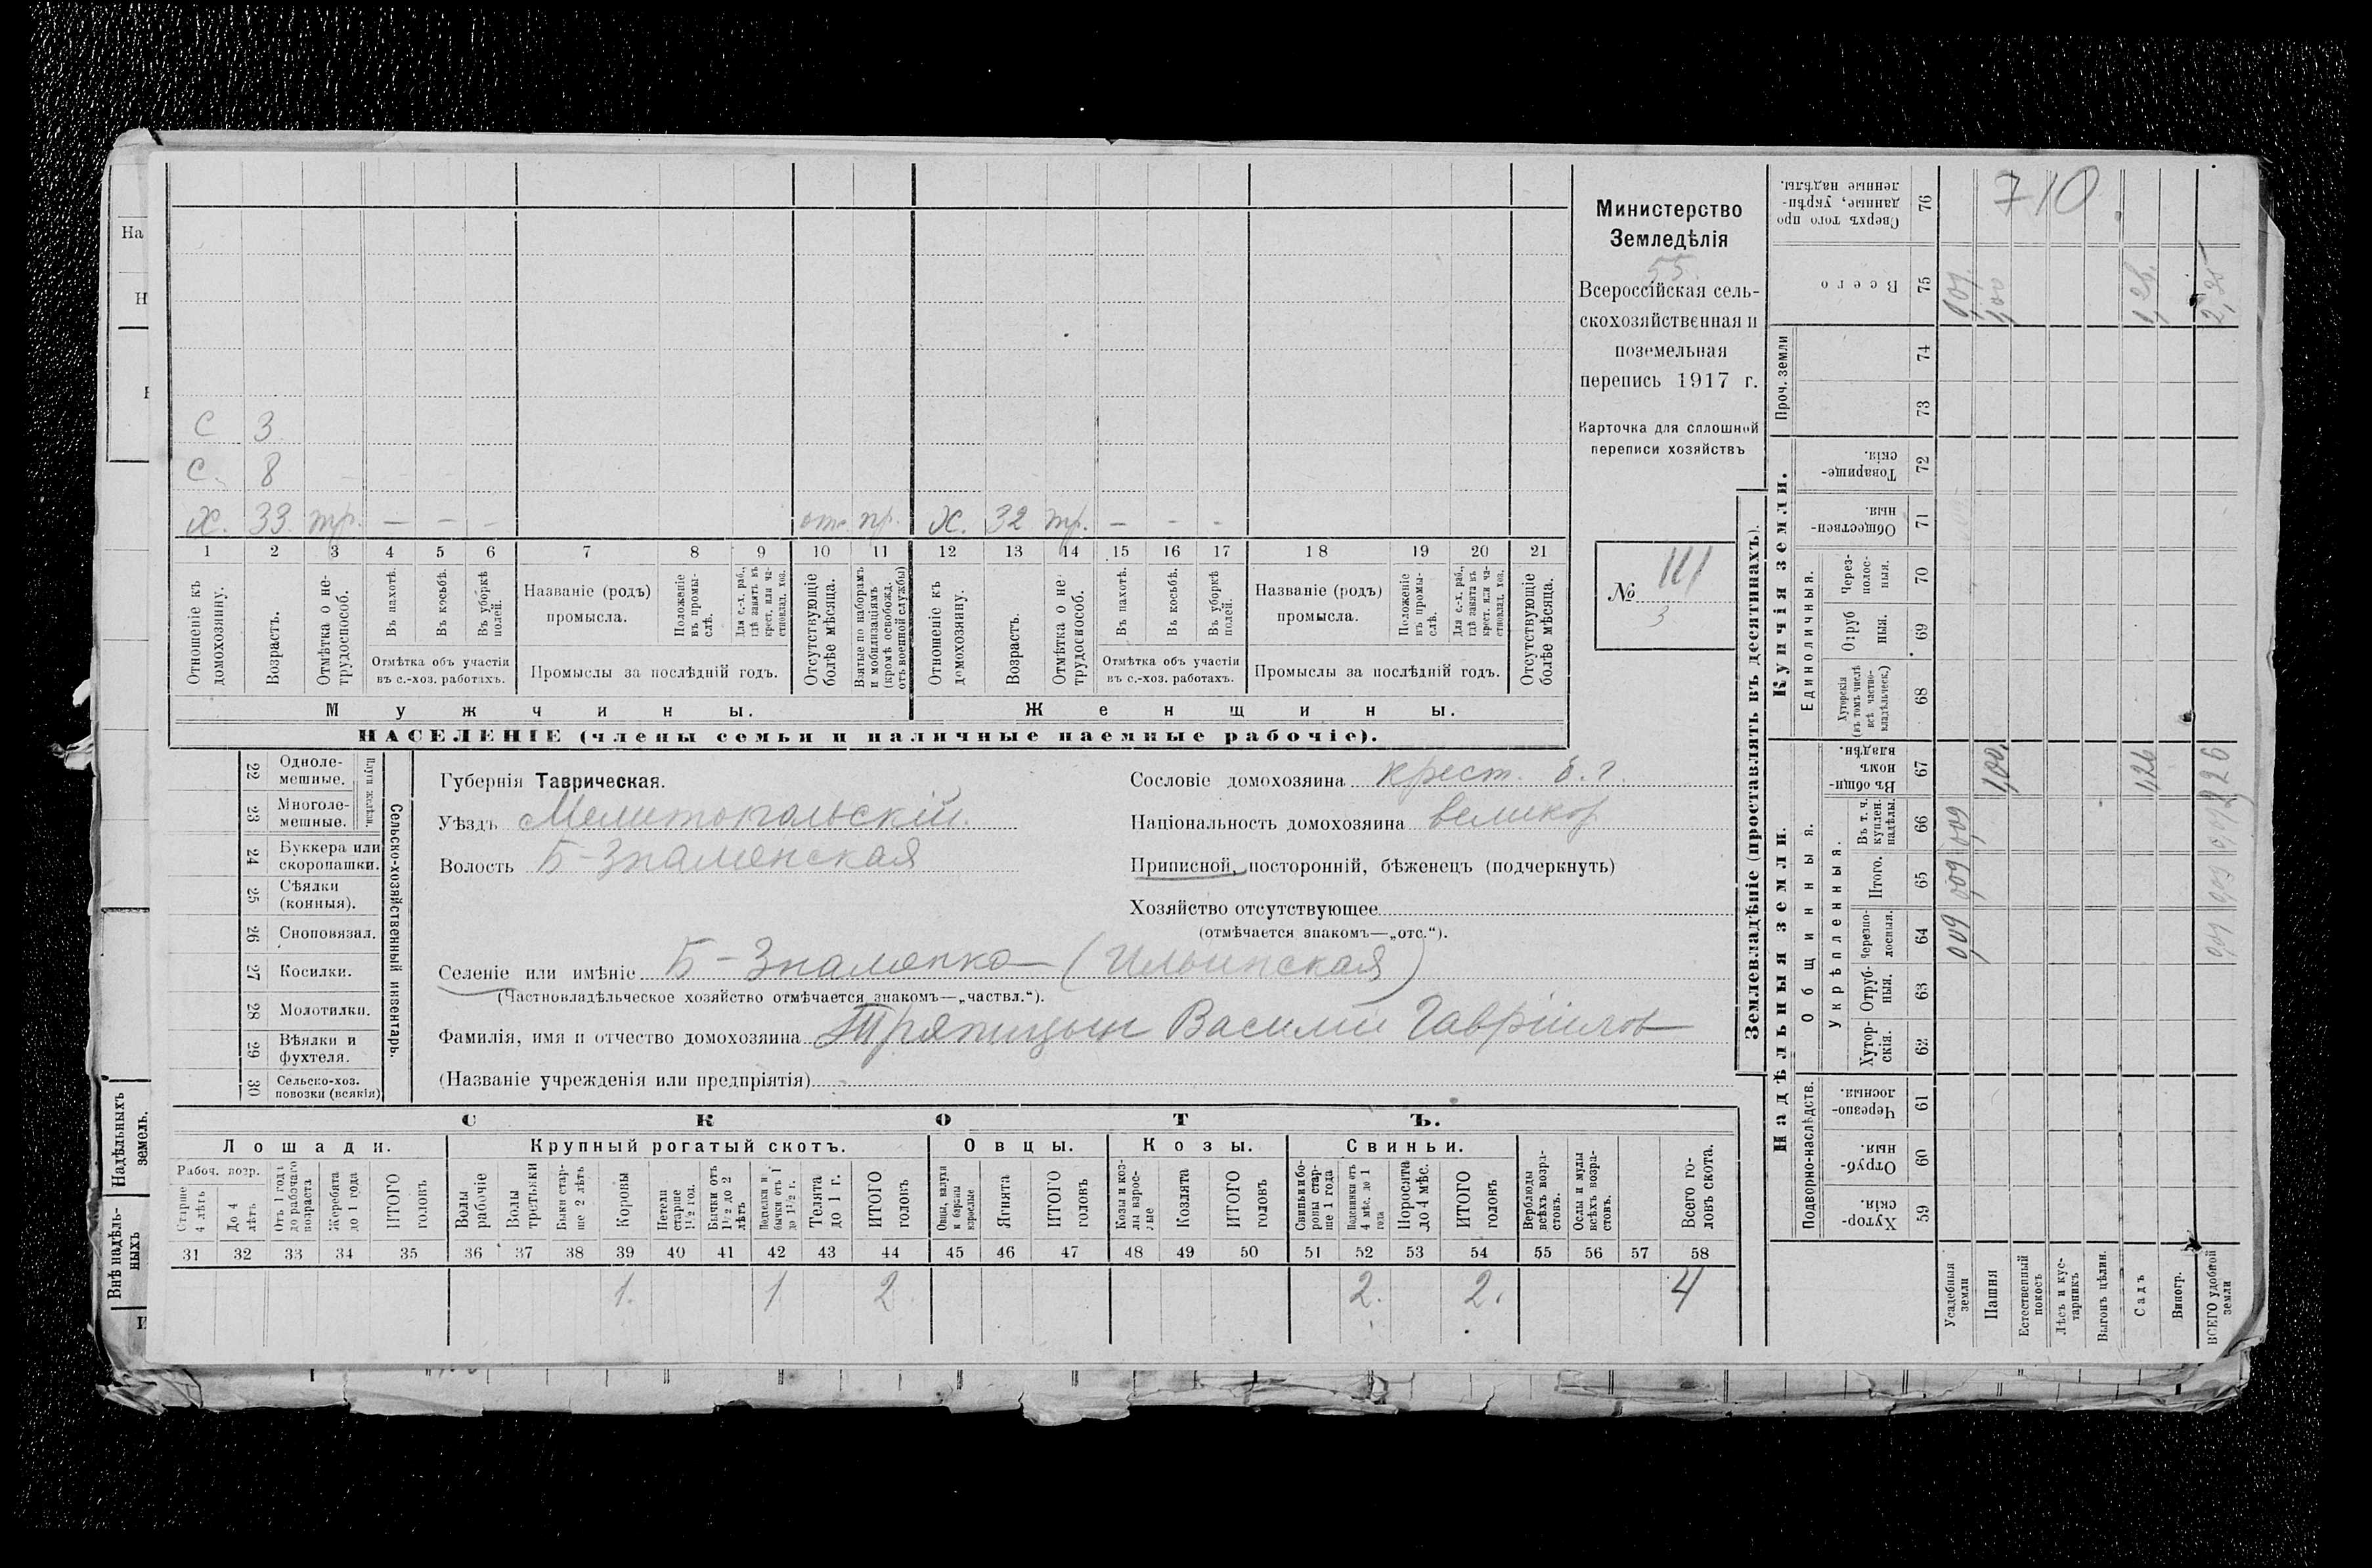 С 3
С. 8
Х. 33 тр. — — — отс. пр. Х. 32 тр. — — —
1 2 3 4 5 6 7 8 9 10 11 12 13 14 15 16 17 18 19 20 21
Отношеніе къ домохозяину.
Возрастъ.
Отмѣтка о не-
трудоспособ.
Въ пахотѣ.
Въ косьбѣ.
Въ уборкѣ полей.
Отмѣтка объ участіи
въ с.-хоз. работахъ.
Названіе (родъ)
промысла.
Положеніе въ промы-
слѣ.
Для с.-х. раб., гдѣ занятъ въ крест. или ча-
стновлад. хоз.
Промыслы за послѣдній годъ.
Отсутствующіе болѣе мѣсяца.
Взятые по наборамъ и мобилизаціямъ (кромѣ освобожд. отъ военной службы)
Отношеніе къ домохозяину.
Возрастъ.
Отмѣтка о не-
трудоспособ.
Въ пахотѣ.
Въ косьбѣ.
Въ уборкѣ полей.
Отмѣтка объ участіи
въ с.-хоз. работахъ.
Названіе (родъ)
промысла.
Положеніе въ промы-
слѣ.
Для с.-х. раб., гдѣ занята въ крест. или ча-
стновлад. хоз.
Промыслы за послѣдній годъ.
Отсутствующіе болѣе мѣсяца.
Мужчины. Женщины.
НАСЕЛЕНІЕ (члены семьи и наличные наемные рабочіе).
Министерство
Земледѣлія
55.
Всероссійская сель-
скохозяйственная и
поземельная
перепись 1917 г.
Карточка для сплошной
переписи хозяйствъ
№ 111
3
22 Одноле-
мешные.
23 Многоле-
мешные.
Плуги желѣзн.
24 Буккера или
скоропашки.
25 Сѣялки
(конныя).
26 Сноповязал.
27 Косилки.
28 Молотилки.
29 Вѣялки и
фухтеля.
30 Сельско-хоз.
повозки (всякія)
Сельско-хозяйственный инвентарь.
Губернія Таврическая.
Уѣздъ Мелитопольскій.
Волость Б-Знаменская
Сословіе домохозяина крест. б. г.
Національность домохозяина великор
Приписной, посторонній, бѣженецъ (подчеркнуть)
Хозяйство отсутствующее
(отмѣчается знакомъ—„отс.“).
Селеніе или имѣніе Б-Знаменка (Ильинская)
(Частновладѣльческое хозяйство отмѣчается знакомъ—„частвл.“).
Фамилія, имя и отчество домохозяина Тряпицын Василій Гавріилов
(Названіе учрежденія или предпріятія)
СКОТЪ.
Лошади. Крупный рогатый скотъ. Овцы. Козы. Свиньи.
Рабоч. возр.
Старше 4 лѣтъ
До 4 лѣтъ
Отъ 1 года до рабочаго возраста
Жеребята до 1 года
ИТОГО головъ
Волы рабочіе
Волы третьяки
Быки стар-
ше 2 лѣтъ
Коровы
Нетели старше 1½ год.
Бычки отъ 1½ до 2 лѣтъ
Подтелки и бычки отъ 1 до 1½ г.
Телята до 1 г.
ИТОГО головъ
Овцы, валухи и бараны взрослые
Ягнята
ИТОГО головъ
Козы и коз-
лы взрос-
лые
Козлята
ИТОГО головъ
Свиньи и бо-
ровы стар-
ше 1 года
Подсвинки отъ 4 мѣс. до 1 года
Поросята до 4 мѣс.
ИТОГО головъ
Верблюды всѣхъ возра-
стовъ.
Ослы и мулы всѣхъ возра-
стовъ.
Всего го-
ловъ скота.
31 32 33 34 35 36 37 38 39 40 41 42 43 44 45 46 47 48 49 50 51 52 53 54 55 56 57 58
1. 1 2 2. 2. 4
Землевладѣніе (проставлять въ десятинахъ).
Купчія земли.
Надѣльныя земли.
Сверхъ того про
даные, укрѣп-
ленные надѣлы. 76 710
Всего 75 1,00 1,26
Проч. земли 74 73
Товарище-
скія. 72
Обществен-
ныя. 71
Единоличныя.
Через-
полос-
ныя. 70
Отруб
ныя. 69
Хуторскія
(въ томъ числѣ
всѣ частно-
владѣльческ.) 68
Въ общи-
номъ
владѣн. 67 1,00. 1,26
Общинныя.
Укрѣпленныя.
Въ т. ч.
куплен.
надѣлы. 66 0,09
Итого. 65 0,09
Черезпо-
лосныя. 64 0,09
Отруб-
ныя. 63
Хутор-
скія. 62
Подворно-наслѣдств.
Черезпо-
лосныя. 61
Отруб-
ныя. 60
Хутор-
скія. 59
Усадебныя земли
Пашня
Естественный покосъ
Лѣсъ и кус-
тарникъ
Выгонъ цѣлин.
Садъ
Виногр.
ВСЕГО удобной земли
На
Н
Надѣльныхъ земель.
Внѣ надѣль-
ныхъ
И